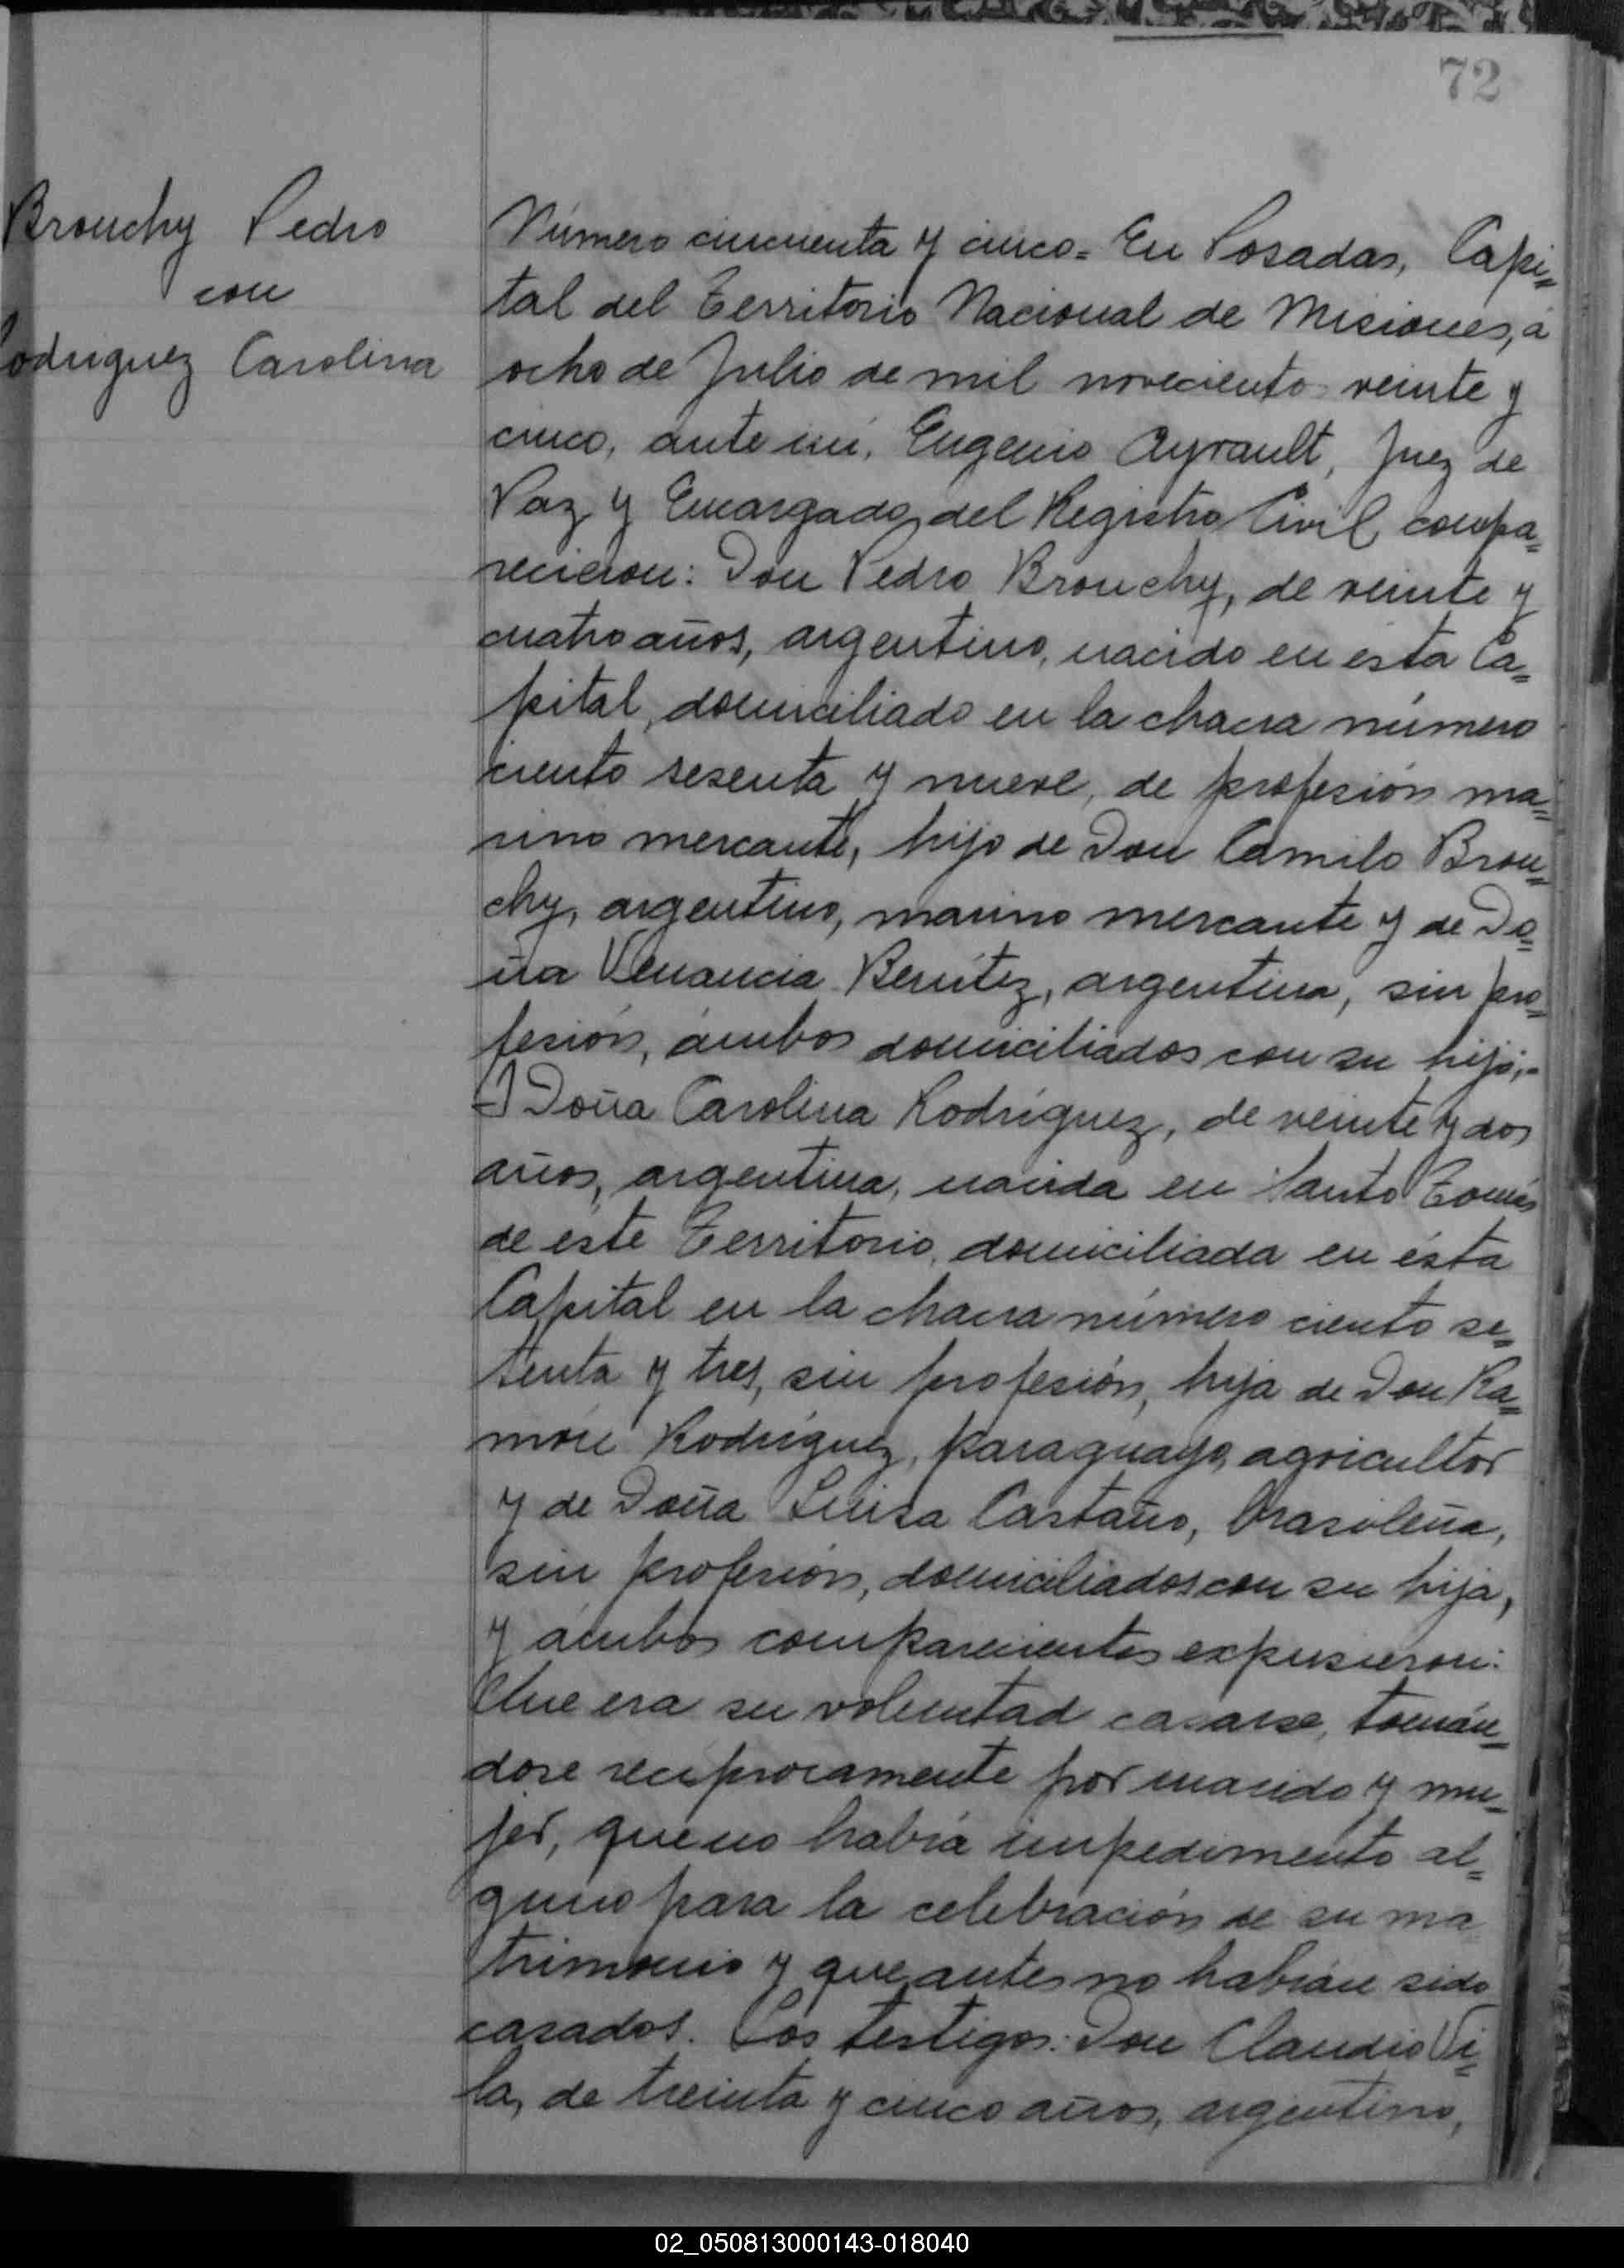 72
Brouchy Pedro
con
Rodriguez Carolina
Número cincuenta y cinco = En Posadas, Capi=
tal del Territorio Nacional de Misiones, á
ocho de Julio de mil novecientos veinte y
cinco, ante mi, Eugenio Ayrault, Juez de
Paz y Encargado del Registro Civil, compa=
recieron: Don Pedro Brouchy, de veinte y
cuatro años, argentino, nacido en ésta Ca=
pital, domiciliado en la chacra número
ciento sesenta y nueve, de profesión ma=
rino mercante, hijo de Don Camilo Brou=
chy, argentino, marino mercante y de Do=
ña Venancia Benítez, argentina, sin pro=
fesión, ámbos domiciliados con su hijo;-
Doña Carolina Rodríguez, de veinte y dos
años, argentina, nacida en Santo Tomás
de éste Territorio, domiciliada en ésta
Capital en la chacra número ciento se=
tenta y tres, sin profesión, hija de Don Ra=
món Rodríguez, paraguayo, agricultor
y de Doña Luisa Castaño, brasileña,
sin profesión, domiciliados con su hija,
y ámbos comparecientes expusieron:
Que era su voluntad casarse, tomán=
dose reciprocamente por marido y mu=
jer, que no había impedimento al=
guno para la celebración de su ma
trimonio y que antes no habían sido
casados. Los testigos: Don Claudio Vi=
la, de treinta y cinco años, argentino,
02_050813000143-018040